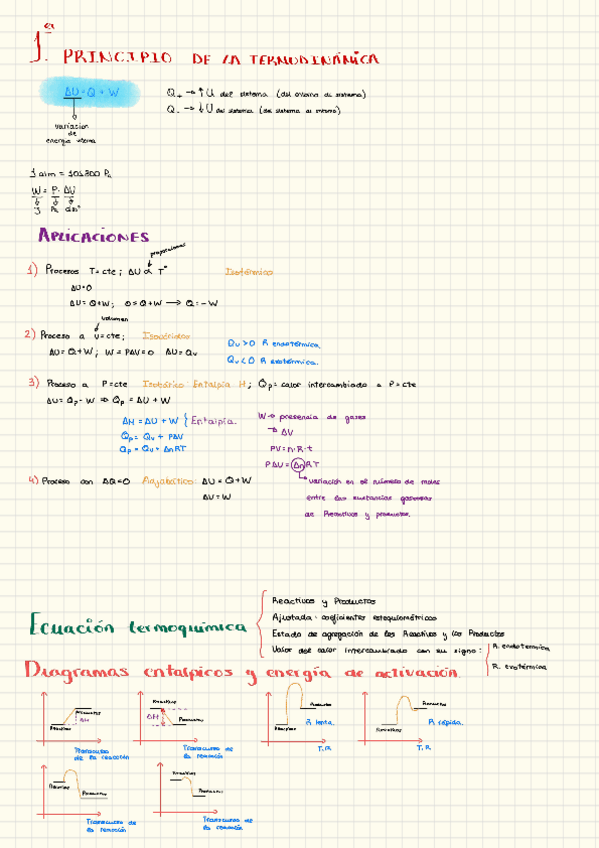 1.er PRINCIPIO DE LA TERMODINÁMICA
ΔU=Q+W
variación
de
energía interna
Q+ → ↑U del sistema (del entorno al sistema)
Q- → ↓U del sistema (del sistema al entorno)
1 atm = 101300 Pa
W = P · ΔV
J Pa
APLICACIONES
proporcional
1) Procesos T=cte; ΔU α Tª Isotérmico
ΔU=0
ΔU=Q+W; 0=Q+W → Q=-W
volumen
2) Proceso a v=cte; Isocóricos
ΔU=Q+W; W=PΔV=0 ΔU=Qv
Qv>0 R endotérmica.
Qv<0 R exotérmica.
3) Proceso a P=cte Isobárico: Entalpía H; Qp=calor intercambiado a P=cte
ΔU=Qp-W ⇒ Qp=ΔU+W
ΔH=ΔU+W { Entalpía.
Qp=Qv+PΔV
Qp=Qv+ΔnRT
W→ presencia de gases
→ ΔV
PV=n·R·t
PΔV=ΔnRT
variación en el número de moles
entre las sustancias gaseosas
de Reactivos y productos.
4) Proceso con ΔQ=0 Adiabático: ΔU=Q+W
ΔU=W
Ecuación termoquímica
Reactivos y Productos
Ajustada: coeficientes estequiométricos
Estado de agregación de los Reactivos y los Productos
Valor del calor intercambiado con su signo:
R. endotérmica
R. exotérmica
Diagramas entálpicos y energía de activación.
Reactivos
Productos
ΔH
Transcurso de
la reacción
Reactivos
ΔH
Productos
Transcurso de
la reacción
Reactivos
Productos
R lenta.
T.R
Reactivos
Productos
R rápida.
T.R
Reactivos
Productos
Transcurso de
la reacción
Reactivos
Productos
Transcurso de
la reacción